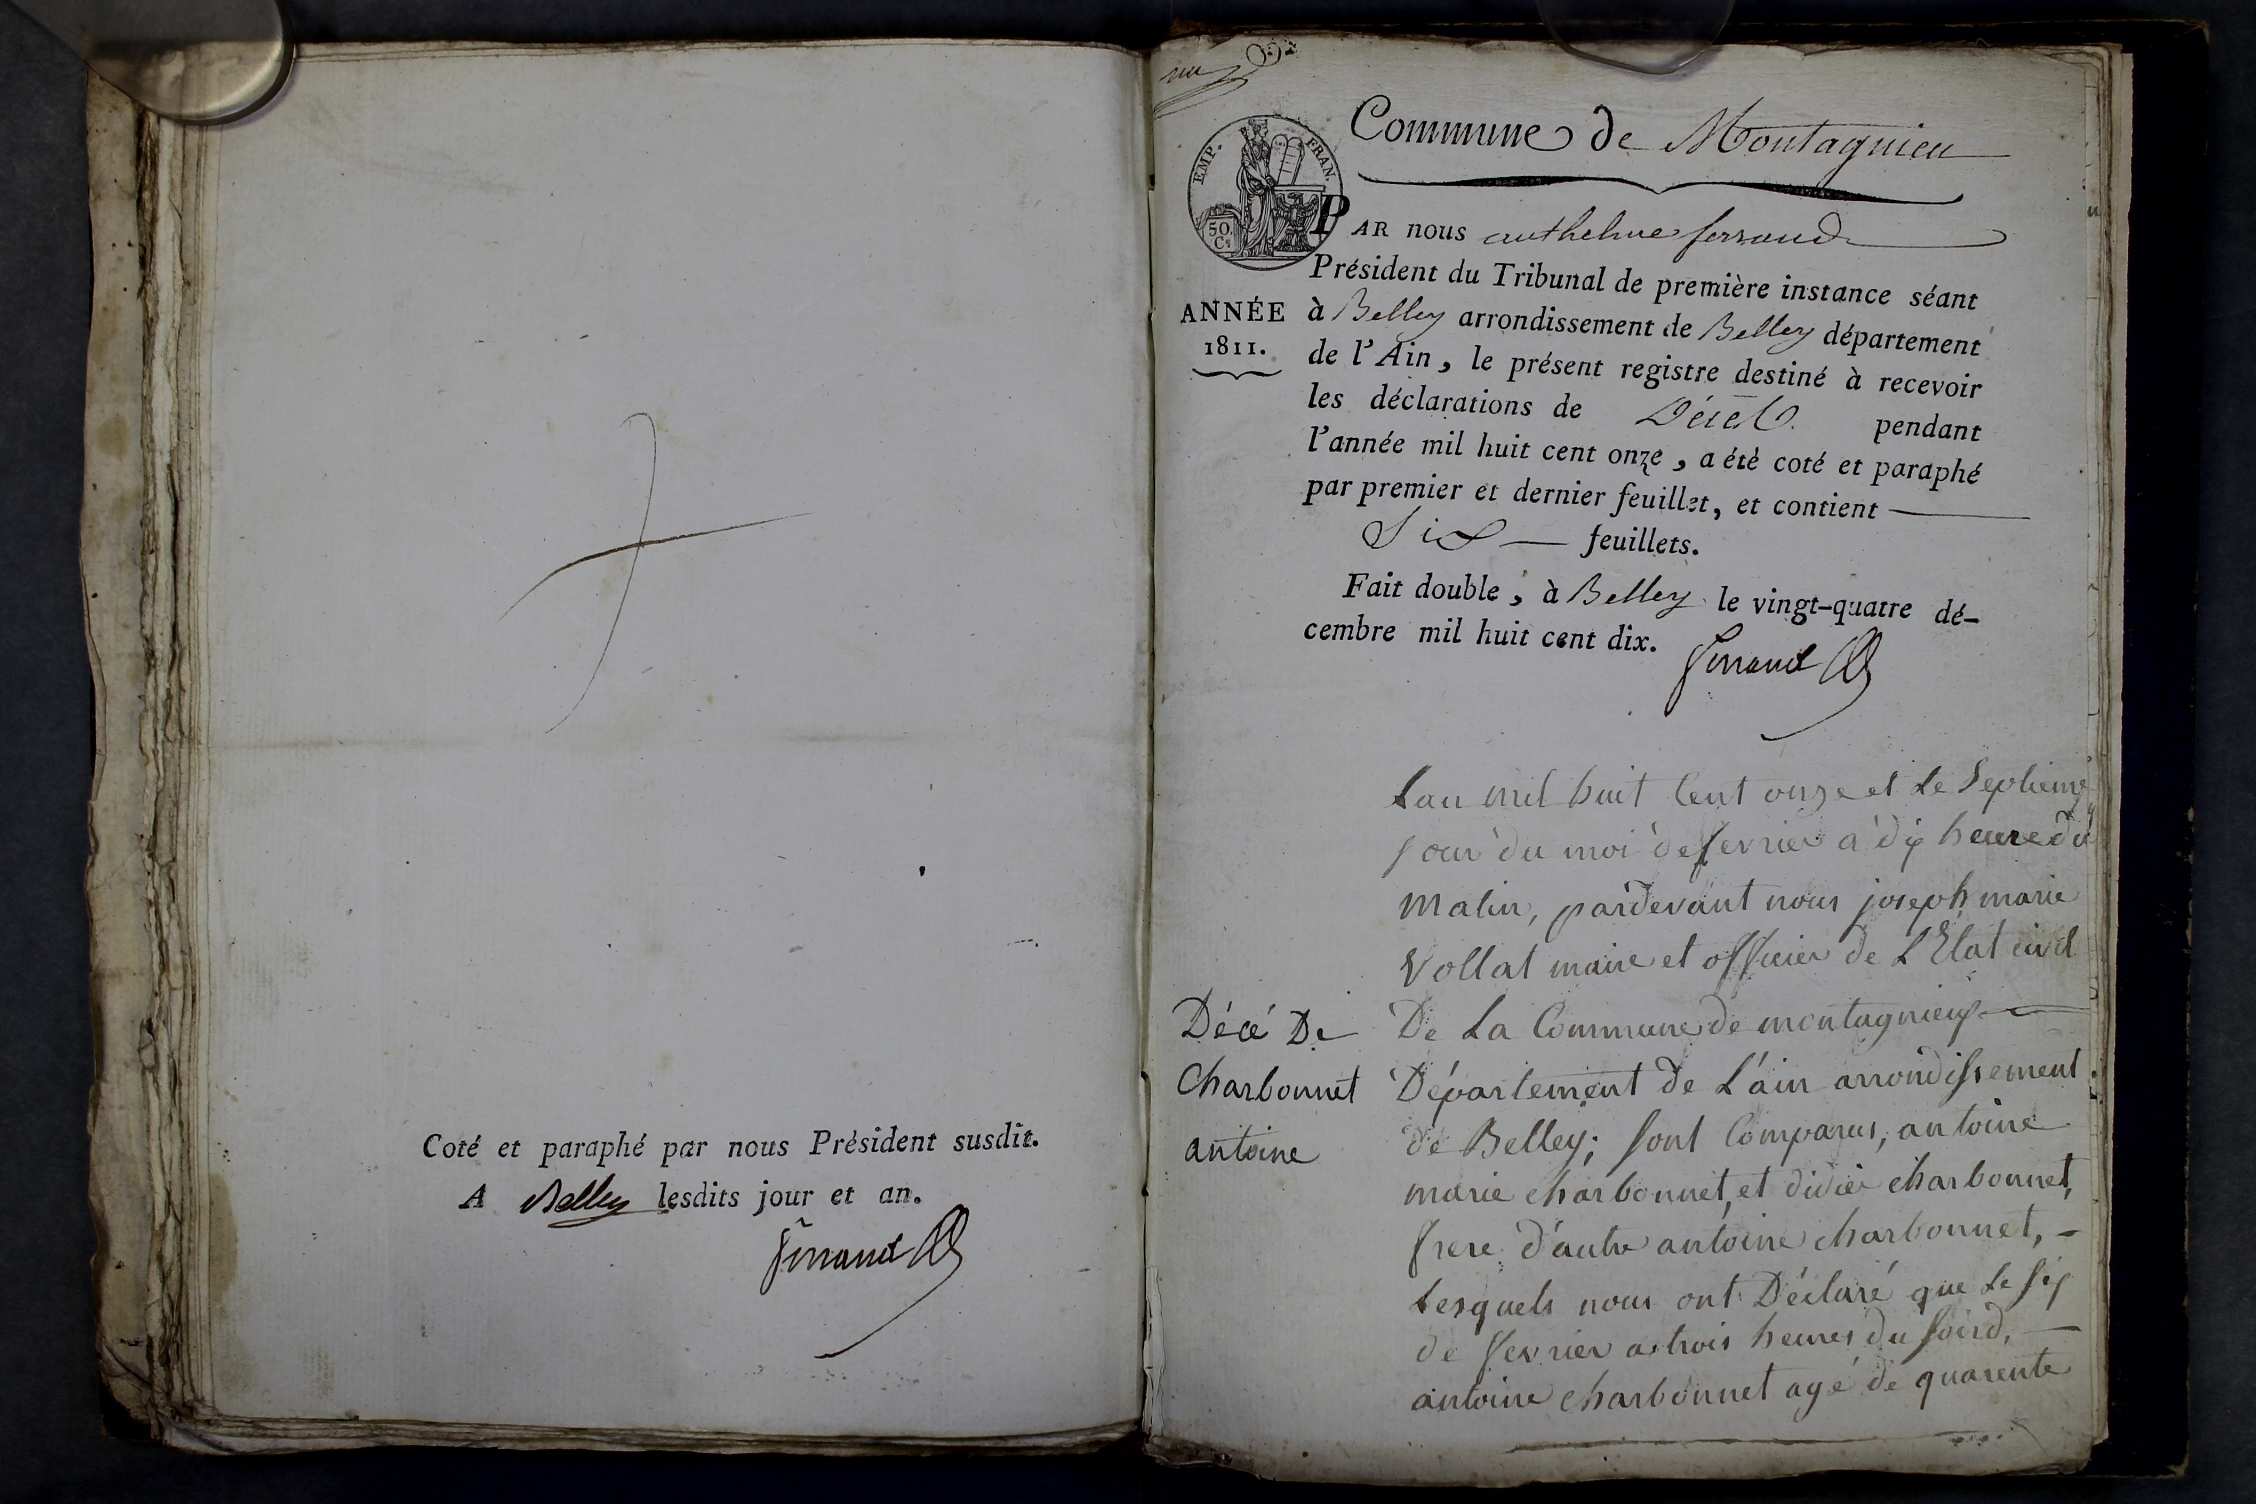 Coté et paraphé par nous Président susdit.
A Belley lesdits jour et an.
Ferrand
Commune de Montagnieu
EMP. FRAN.
50. Cs
PAR nous anthelme ferrand
Président du Tribunal de première instance séant
à Belley arrondissement de Belley département
de l'Ain, le présent registre destiné à recevoir
les déclarations de Décès pendant
l'année mil huit cent onze, a été coté et paraphé
par premier et dernier feuillet, et contient
Six feuillets.
Fait double, à Belley le vingt-quatre dé-
cembre mil huit cent dix.
Ferrand
ANNÉE
1811.
Lan mil huit Cent onze et Le Septieme
jour du moi de fevrier a dix heure du
matin, pardevant nous joseph marie
Vollat maire et officier de L'Etat civil
De La Commune de montagnieux
Département de L'ain arrondissement
de Belley; sont Comparus, antoine
marie charbonnet, et didier charbonnet,
frere d'autre antoine charbonnet, -
Lesquels nous ont Déclaré que Le six
de fevrier a trois heures du soird,
antoine charbonnet agé de quarente
Décé De
Charbonnet
antoine